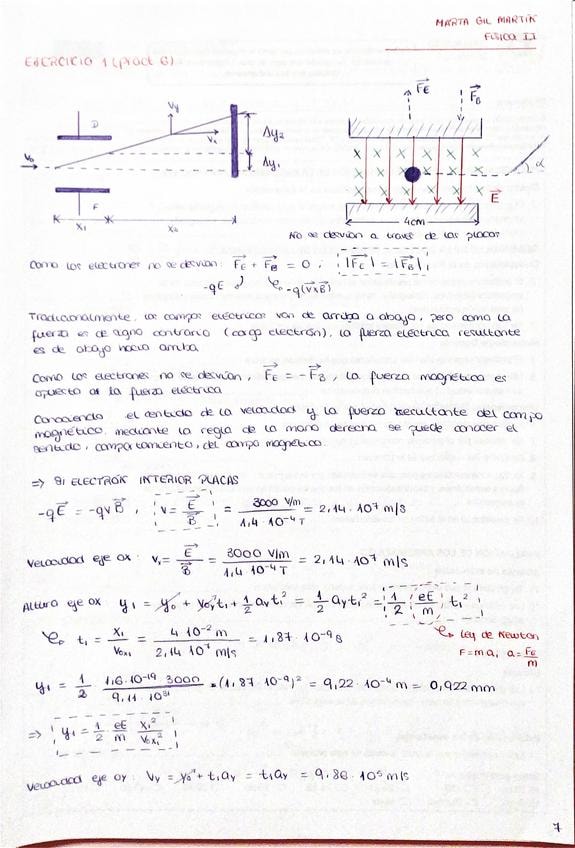 MARTA GIL MARTÍN
FÍSICA II
EJERCICIO 1 (pract 6)
D
Vy
Vx
Δy2
Δy1
V0
F
x1
x2
FE
FB
α
E
4cm
No se desvían a través de las placas
Como los electrones no se desvían: FE + FB = 0 ; |FE| = |FB|
-qE -q(v×B)
Tradicionalmente, los campos eléctricos van de arriba a abajo, pero como la
fuerza es de signo contrario (carga electrón), la fuerza eléctrica resultante
es de abajo hacia arriba.
Como los electrones no se desvían, FE = -FB, la fuerza magnética es
opuesta a la fuerza eléctrica
Conociendo el sentido de la velocidad y la fuerza resultante del campo
magnético, mediante la regla de la mano derecha se puede conocer el
sentido, comportamiento, del campo magnético.
⇒ SI ELECTRÓN INTERIOR PLACAS
-qE = -qvB , v = E/B = 3000 V/m / 1,4·10⁻⁴ T = 2,14·10⁷ m/s
Velocidad eje ox: v1 = E/B = 3000 V/m / 1,4·10⁻⁴ T = 2,14·10⁷ m/s
Altura eje ox y1 = y0 + v0y t1 + 1/2 ay t1² = 1/2 ay t1² = 1/2 eE/m t1²
t1 = x1/v0x1 = 4·10⁻² m / 2,14·10⁷ m/s = 1,87·10⁻⁹ s
Ley de Newton
F = m a, a = Fe/m
y1 = 1/2 1,6·10⁻¹⁹ 3000 / 9,11·10³¹ * (1,87·10⁻⁹)² = 9,22·10⁻⁴ m = 0,922 mm
⇒ y1 = 1/2 eE/m x1²/v0x1²
Velocidad eje oy: Vy = y0 + t1 ay = t1 ay = 9,86·10⁵ m/s
7